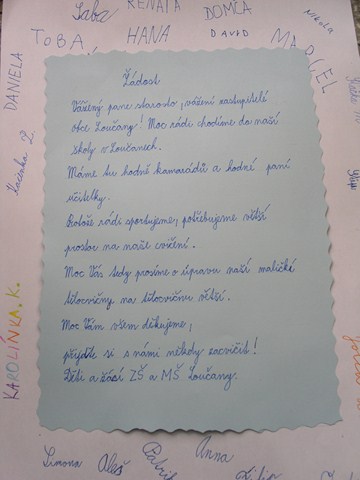 Saba
RENATA
DOMČA
Nikola
TOBA,
HANA
DAVID
MARCEL
DANIELA
Kačenka Z.
KAROLÍNKA.K.
Žádost
Vážený pane starosto, vážení zastupitelé
obce Loučany! Moc rádi chodíme do naší
školy v Loučanech.
Máme tu hodně kamarádů a hodné paní
učitelky.
Protože rádi sportujeme, potřebujeme větší
prostor na naše cvičení.
Moc Vás tedy prosíme o úpravu naší maličké
tělocvičny na tělocvičnu větší.
Moc Vám všem děkujeme,
přijďte si s námi někdy zacvičit!
Děti a žáci ZŠ a MŠ Loučany.
Simona
Aleš
Patrik
Anna
Filip